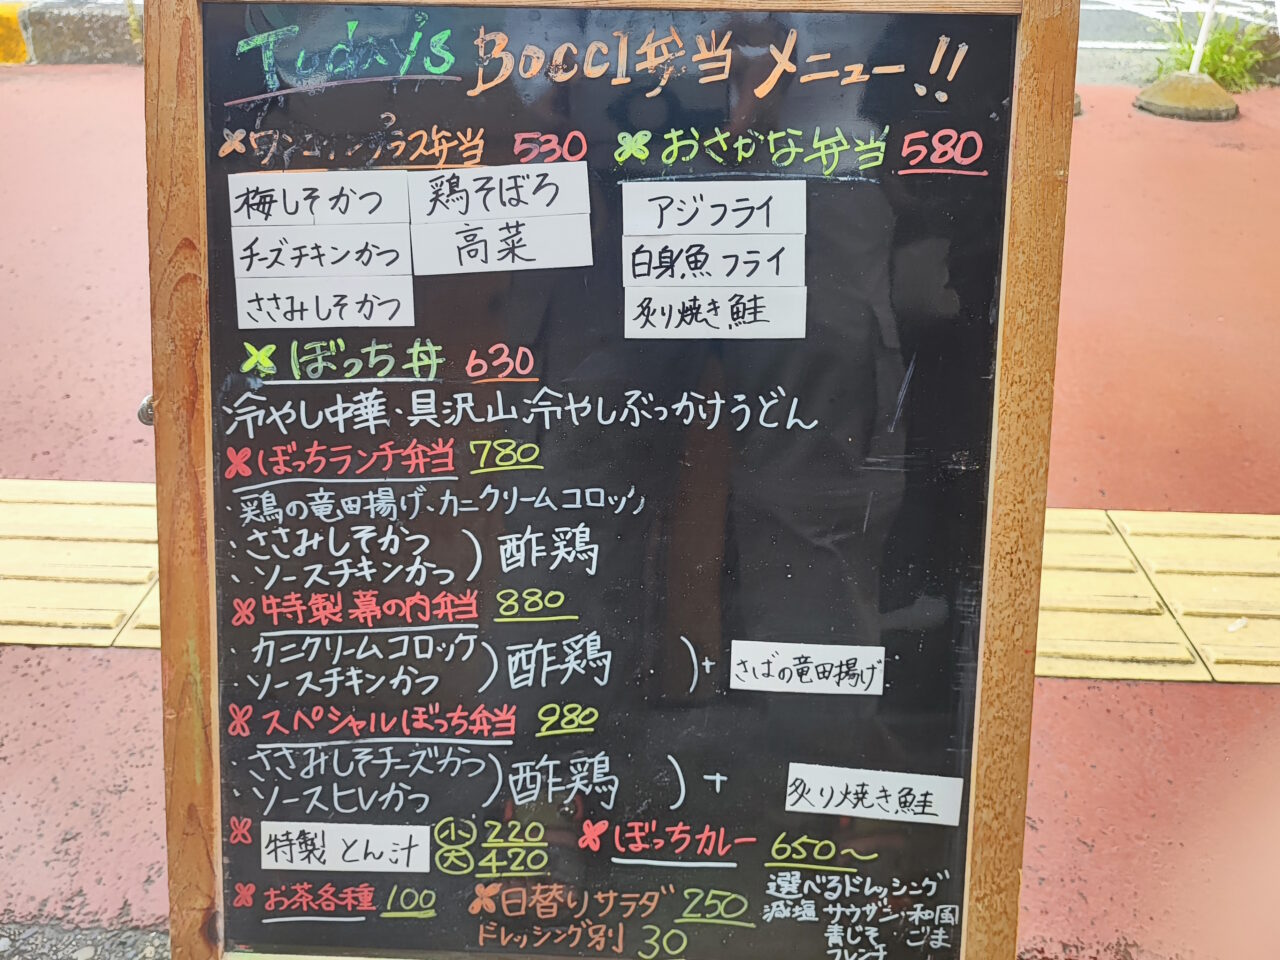 Today's Bocci弁当 メニュー!!
ワンコインプラス弁当 530
梅しそかつ
鶏そぼろ
チーズチキンかつ
高菜
ささみしそかつ
おさかな弁当 580
アジフライ
白身魚フライ
炙り焼き鮭
ぼっち丼 630
冷やし中華・具沢山冷やしぶっかけうどん
ぼっちランチ弁当 780
・鶏の竜田揚げ、カニクリームコロッケ
・ささみしそかつ
・ソースチキンかつ ) 酢鶏
特製幕の内弁当 880
・カニクリームコロッケ
・ソースチキンかつ ) 酢鶏 ) + さばの竜田揚げ
スペシャルぼっち弁当 980
・ささみしそチーズかつ
・ソースヒレかつ ) 酢鶏 ) + 炙り焼き鮭
特製とん汁 小 220
大 420
ぼっちカレー 650〜
お茶各種 100
日替りサラダ 250
ドレッシング別 30
選べるドレッシング
減塩サウザン・和風
青じそ ごま
フレンチ